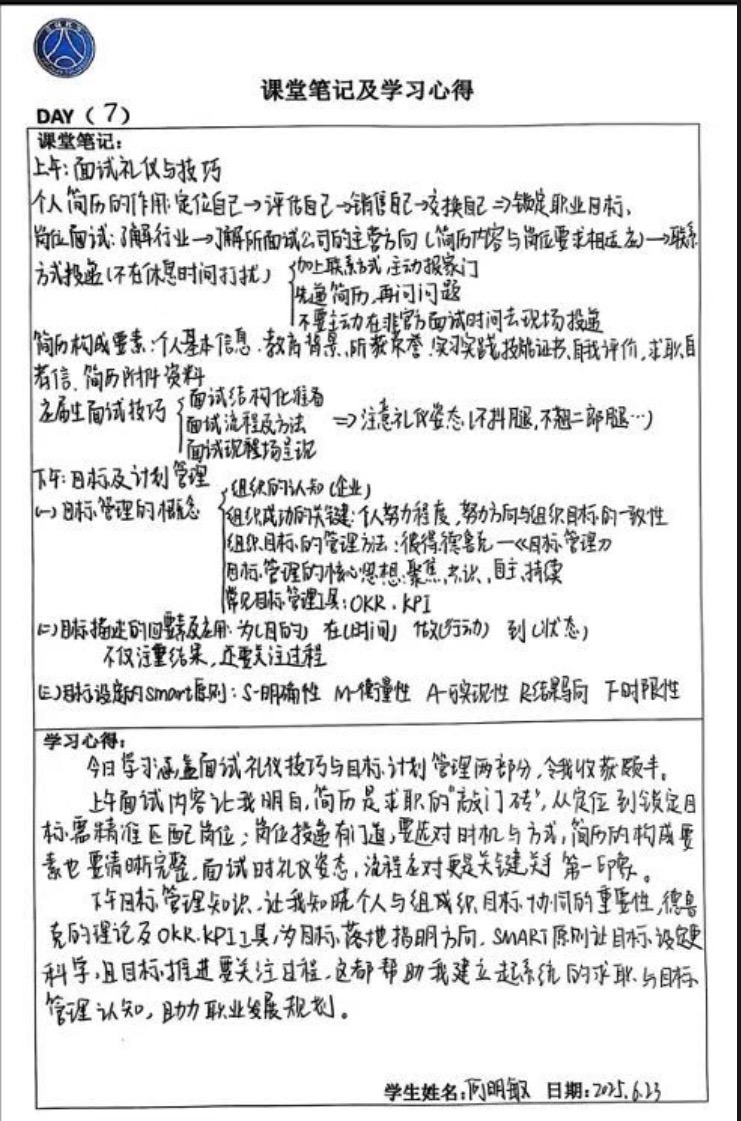 课堂笔记及学习心得
DAY（7）
课堂笔记：
上午：面试礼仪与技巧
个人简历的作用：定位自己→评估自己→销售自己→交换自己⇒锁定职业目标、
岗位面试：了解行业→了解所面试公司的主营方向（简历内容与岗位要求相适应）→联系
方式投递（不在休息时间打扰）
加上联系方式，主动报家门
先递简历，再问问题
不要主动在非官方面试时间去现场投递
简历构成要素：个人基本信息、教育背景、所获荣誉、实习实践、技能证书、自我评价、求职自
荐信、简历附件资料
应届生面试技巧
面试结构化准备
面试流程及方法
面试现场呈现
⇒注意礼仪姿态（不抖腿，不翘二郎腿…）
下午：目标及计划管理
(一)目标管理的概念
组织的认知（企业）
组织成功的关键：个人努力程度，努力方向与组织目标的一致性
组织目标的管理方法：彼得德鲁克—《目标管理》
目标管理的核心思想：聚焦，共识，自主，持续
常见目标管理工具：OKR、KPI
(二)目标描述的四要素及应用：为（目的） 在（时间） 做（行动） 到（状态）
不仅注重结果，还要关注过程
(三)目标设定的smart原则：S-明确性 M-衡量性 A-可实现性 R-结果导向 T-时限性
学习心得：
今日学习涵盖面试礼仪技巧与目标、计划管理两部分，令我收获颇丰。
上午面试内容让我明白，简历是求职的“敲门砖”，从定位到锁定目
标需精准匹配岗位；岗位投递有门道，要选对时机与方式，简历的构成要
素也要清晰完整，面试时礼仪姿态，流程应对更是关键关乎第一印象。
下午目标管理知识，让我知晓个人与组成织目标协同的重要性，德鲁
克的理论及OKR、KPI工具，为目标落地指明方向，SMART原则让目标设定更
科学，且目标推进要关注过程，这都帮助我建立起系统的求职与目标
管理认知，助力职业发展规划。
学生姓名：阿明敏 日期：2025.6.23